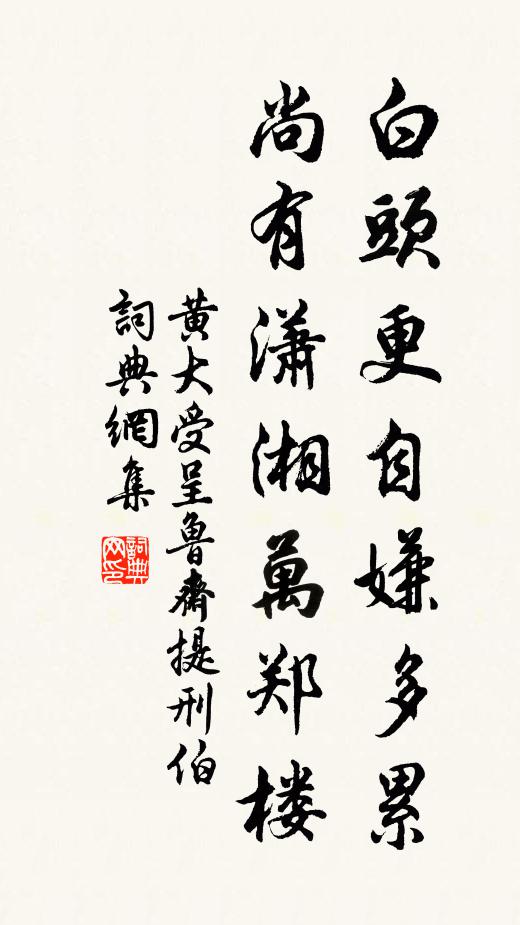 白頭更自嫌多累
尚有瀟湘萬郑楼
黄大受呈魯齋提刑伯
詞典網集
詞典
网印